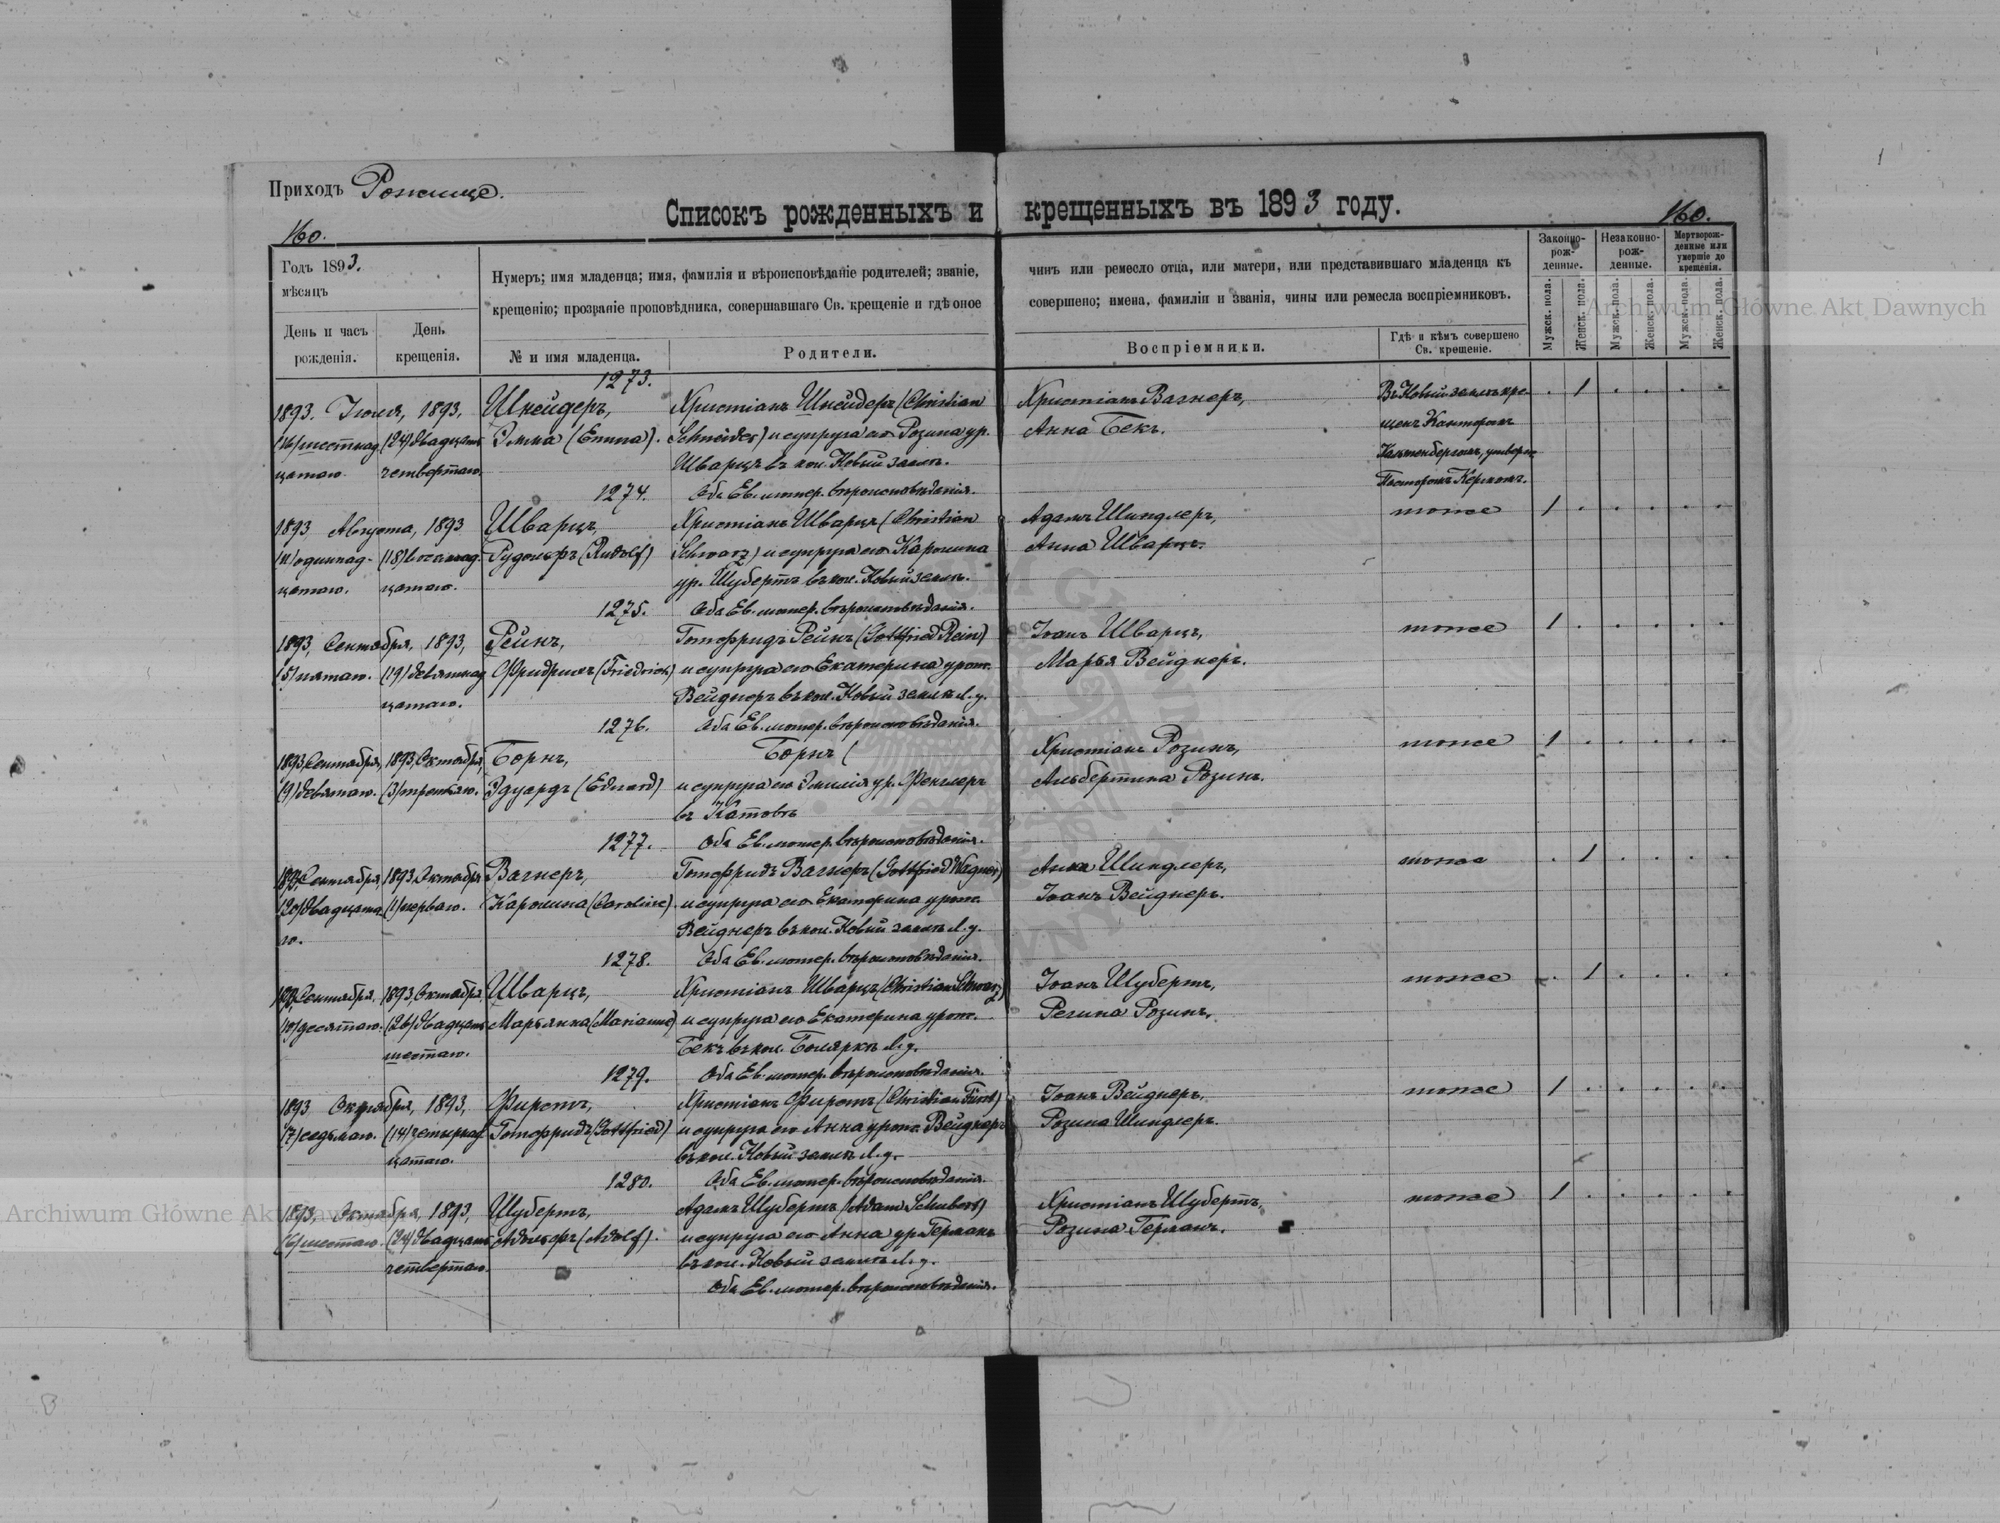 Приходъ Рожище.
Списокъ рожденныхъ и крещенныхъ въ 1893 году.
160.
160.
Годъ 1893.
мѣсяцъ
День и часъ рожденія.
День крещенія.
Нумеръ; имя младенца; имя, фамилія и вѣроисповѣданіе родителей; званіе,
чинъ или ремесло отца, или матери, или представившаго младенца къ
крещенію; прозваніе проповѣдника, совершавшаго Св. крещеніе и гдѣ оное
совершено; имена, фамиліи и званія, чины или ремесла воспріемниковъ.
№ и имя младенца.
Родители.
Воспріемники.
Гдѣ и кѣмъ совершено Св. крещеніе.
Законно-рож-денные.
Незаконно-рож-денные.
Мертворож-денные или умершіе до крещенія.
Мужск. пола.
Женск. пола.
Мужск. пола.
Женск. пола.
Мужск. пола.
Женск. пола.
1273.
1893. Іюля, 1893, Шнейдеръ, Христіанъ Шнейдеръ (Christian Христіанъ Вагнеръ, Въ Новый земль кре- . 1 . . . .
(16) шестнад (24) двадцать Эмма (Emma). Schneider) и супруга его Розина ур. Анна Бекъ. щенъ Канторомъ
цатаго. четвертаго. Шварцъ въ кол. Новый земль.
Пасторомъ Керномъ.
1274. Оба Ев. лютер. вѣроисповѣданія.
1893 Августа, 1893 Шварцъ, Христіанъ Шварцъ (Christian Адамъ Шиндлеръ, тоже 1 . . . . .
(11) одиннад- (18) восемнад. Рудольфъ (Rudolf) Schwarz) и супруга его Каролина Анна Шварцъ.
цатаго. цатаго. ур. Шубертъ въ кол. Новый земль.
1275. Оба Ев. лютер. вѣроисповѣданія.
1893, Сентября, 1893, Рейнъ, Готфридъ Рейнъ (Gottfried Rein) Іоанъ Шварцъ, тоже 1 . . . . .
(5) пятаго. (19) девятнад Фридрихъ (Friedrich) и супруга его Екатерина урож. Марья Вейднеръ.
цатаго. Вейднеръ въ кол. Новый земль Л. у.
1276. Оба Ев. лютер. вѣроисповѣданія.
1893, Сентября, 1893, Октября, Борнъ, Борнъ ( Христіанъ Розинъ, тоже 1 . . . . .
(9) девятаго. (3) третьяго. Эдуардъ (Eduard) и супруга его Эмилія ур. Фенглеръ Альбертина Розинъ.
въ Катовѣ
1277. Оба Ев. лютер. вѣроисповѣданія.
1893, Сентября, 1893, Октября Вагнеръ, Готфридъ Вагнеръ (Gottfried Wagner) Анна Шиндлеръ, тоже . 1 . . . .
(20) двадцата (1) перваго. Каролина (Caroline). и супруга его Екатерина урож. Іоанъ Вейднеръ.
го. Вейднеръ въ кол. Новый земль Л. у.
1278. Оба Ев. лютер. вѣроисповѣданія.
1893, Сентября, 1893, Октября, Шварцъ, Христіанъ Шварцъ (Christian Schwarz) Іоанъ Шубертъ, тоже . 1 . . . .
(10) десятаго. (26) двадцать Марьянна (Marianne) и супруга его Екатерина урож. Регина Розинъ.
шестаго. Бекъ въ кол. Боляркъ Л. у.
1279. Оба Ев. лютер. вѣроисповѣданія.
1893 Октября, 1893, Фирстъ, Христіанъ Фирстъ (Christian Fürst) Іоанъ Вейднеръ, тоже 1 . . . . .
(7) седьмаго. (14) четырнад Готфридъ (Gottfried) и супруга его Анна урож. Вейднеръ Розина Шиндлеръ.
цатаго. въ кол. Новый земль Л. у.
1280. Оба Ев. лютер. вѣроисповѣданія.
1893, Октября, 1893, Шубертъ, Адамъ Шубертъ (Adam Schubert) Христіанъ Шубертъ, тоже 1 . . . . .
(6) шестаго. (24) двадцать Адольфъ (Adolf). и супруга его Анна ур. Германъ Розина Германъ.
четвертаго. въ кол. Новый земль Л. у.
Оба Ев. лютер. вѣроисповѣданія.
Archiwum Główne Akt Dawnych
Archiwum Główne Akt Dawnych